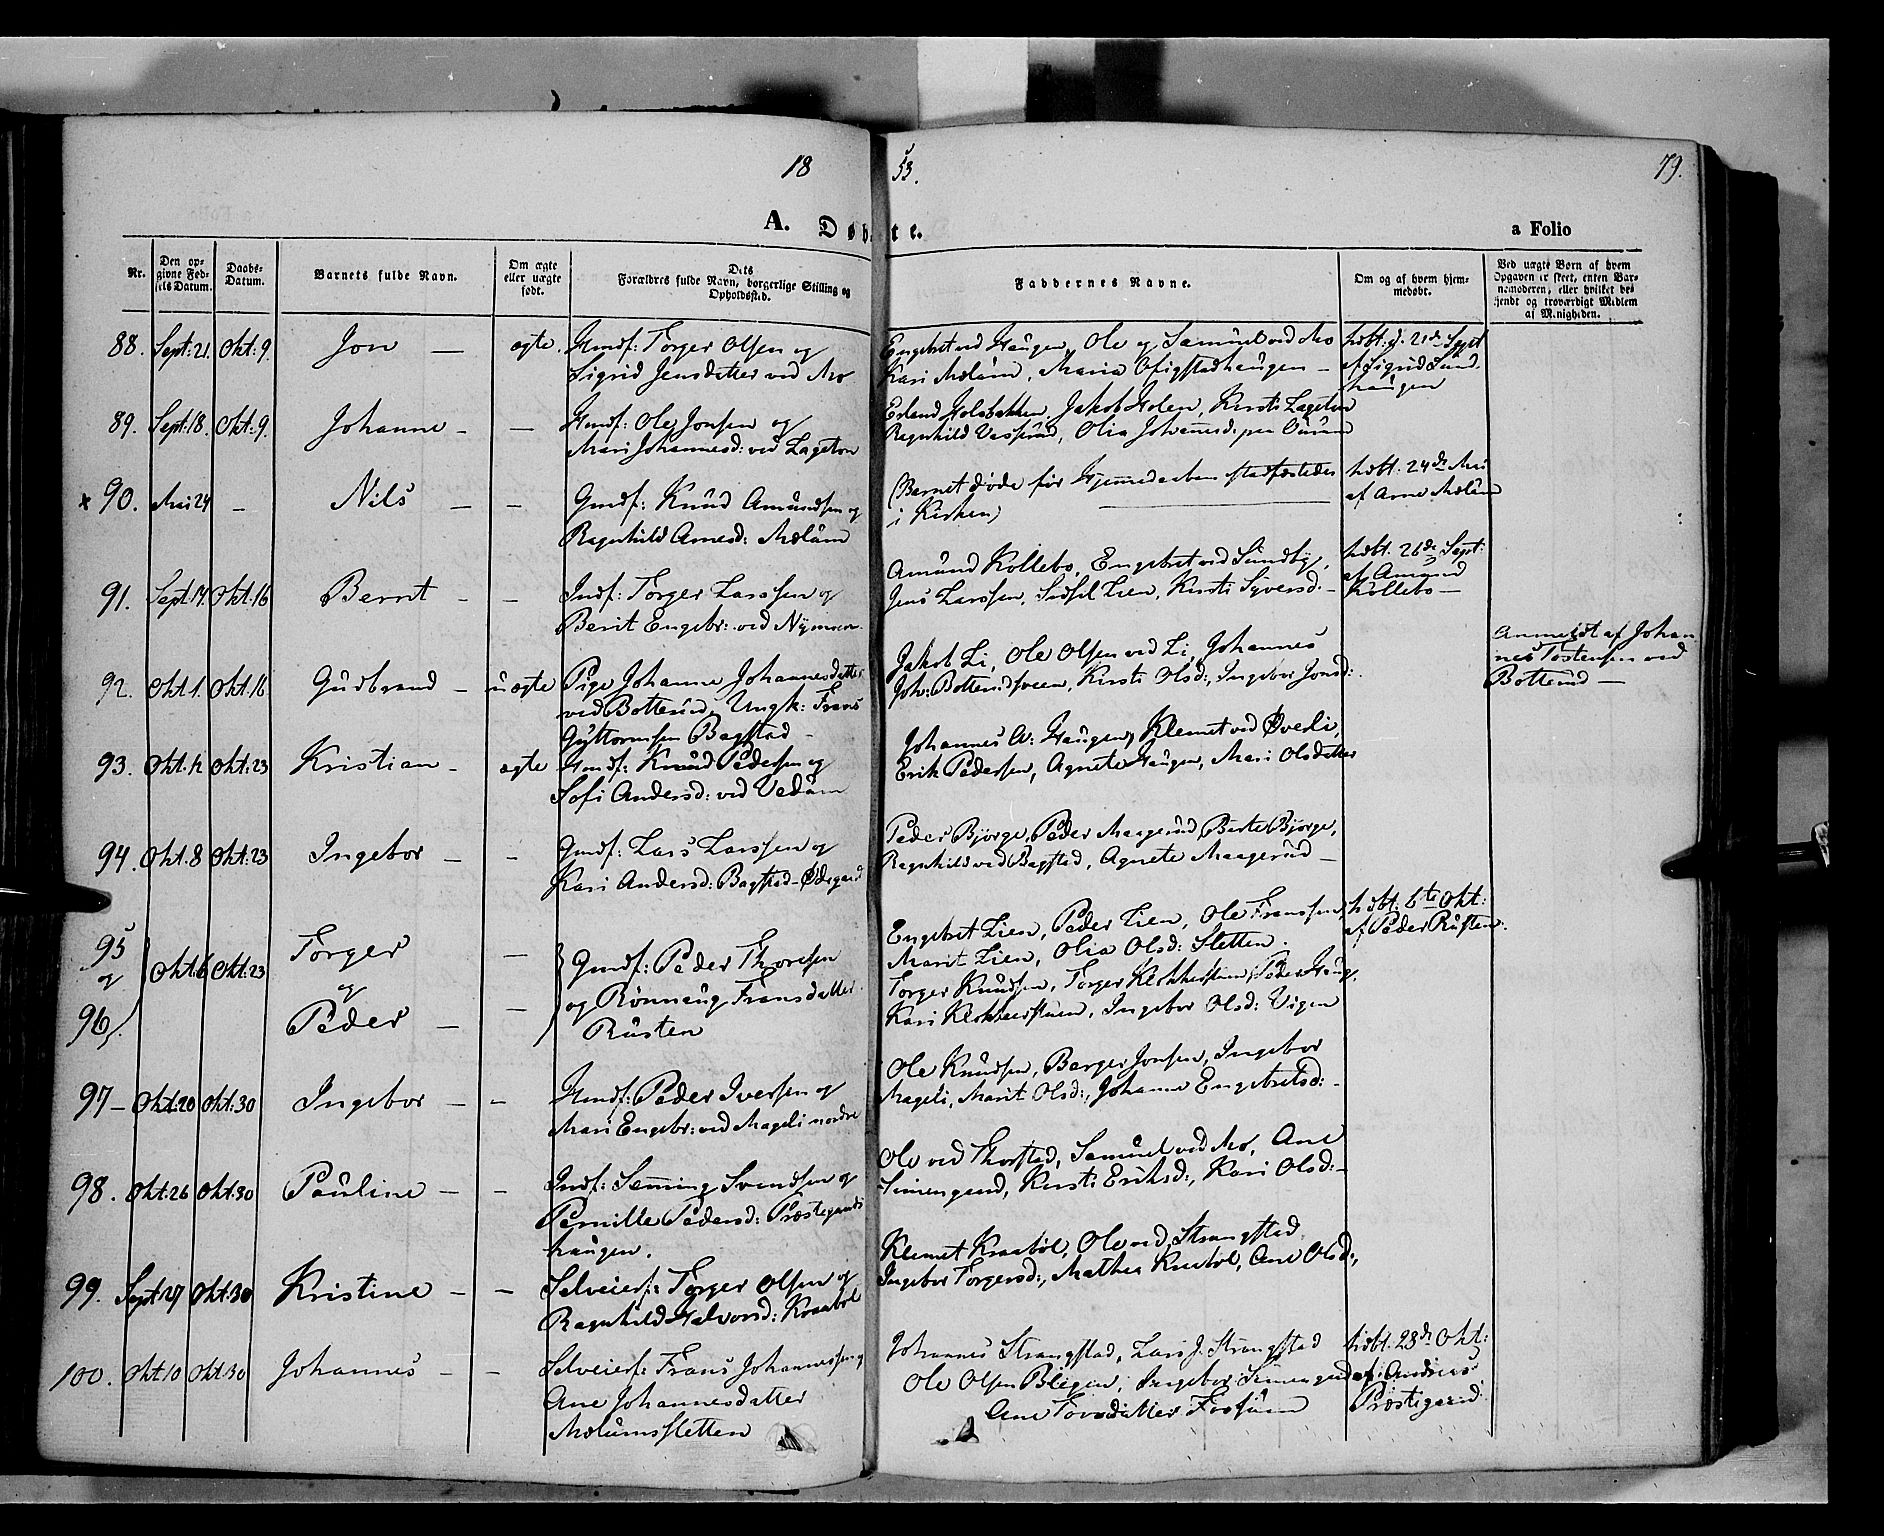 18
53.
79.
A. Døbte.
a Folio
Nr.
Den opgivne Fødsels Datum.
Daabs-Datum.
Barnets fulde Navn.
Om ægte eller uægte født.
Dets Forældres fulde Navn, borgerlige Stilling og Opholdssted.
Faddernes Navne.
Om og af hvem hjemmedøbt.
Ved uægte Børn af hvem Opgaven er skeet, enten Barnemoderen, eller hvilket bekjendt og troværdigt Medlem af Menigheden.
88. Sept: 21. Okt: 9. Jon — ægte. Hmdf: Torger Olsen og
Sigrid Jensdatter ved Mo
Engebret ved Haugen, Ole og Samuel ved Mo
Kari Mælum, Maria Ofigstadhaugen —
hdbt: d. 21de Sept
af Sigrid Lund
haugen
89. Sept: 18. Okt: 9. Johanne — — Hmdf: Ole Jonsen og
Mari Johannesd: ved Lageton
Erland Holsbakken, Jakob Holen, Kirsti Lageton
Ragnhild Vasrud, Olia Johannesd:
x 90. Mai 24 — Nils — — Gmdf: Knud Amundsen og
Ragnhild Arnesd: Mælum
(Barnet døde før Hjemmedaaben stadfæstedes
i Kirken)
hdbt. 24de Mai
af Arne Mælum
91. Sept: 17. Okt: 16 Bernt — — Indf: Torger Larssen og
Berit Engebr: ved Nymoen
Amund Kollebo, Engebret ved Sundby,
Jens Larssen, Sidsel Lien, Kirsti Syversd: —
hdbt. 26de Sept:
af Amund
Kollebo —
92. Okt: 1. Okt: 16 Gudbrand — uægte Pige Johanne Johannesdatter
ved Botterud, Ungk: Frans
Guttormsen Bagstad —
Jakob Li, Ole Olsen ved Li, Johannes
Joh: Botterudsveen, Kirsti Olsd:, Ingebor Jonsd:
Anmeldt af Johan
nes Tostensen ved
Botterud —
93. Okt: 2 Okt: 23 Kristian — ægte Hmdf: Knud Pedersen og
Sofi Andersd: ved Vedum
Johannes A: Haugen, Klemet ved Øveli,
Erik Pedersen, Agnete Haugen, Mari Olsdatter
94. Okt: 8 Okt: 23 Ingebor — — Gmdf: Lars Larssen og
Kari Andersd: Bagstad-Ødegaard
Peder Bjørge, Peder Maagerud, Birte Bjørge,
Ragnhild ved Bagstad, Agnete Maagerud —
95
og
96. Okt: 6 Okt: 23 Torger
og
Peder — — Gmdf: Peder Thoresen
og Rønnaug Fransdatter
Rusten
Engebret Lien, Peder Lien, Ole Franssen,
Marit Lien, Olia Olsd: Sletten.
Torger Knudsen, Torger Klokkerstuen, Peder Haug,
Kari Klokkerstuen, Ingebor Olsd: Vigen
hdbt: 6te Okt:
af Peder Rusten.
97 — Okt: 20 Okt: 30 Ingebor — — Hmdf: Peder Iversen og
Mari Engebr: ved Mageli nordre
Ole Knudsen, Børger Jonsen, Ingebor
Mageli, Marit Olsd:, Johanne Engebretsd: —
98. Okt: 26 Okt: 30 Pauline — — Indf: Semming Svendsen og
Pernille Pedersd: Præstegaards
haugen.
Ole ved Thorstad, Samuel ved Mo, Ane
Simengaard, Kirsti Eriksd:, Kari Olsd: —
99. Sept: 27 Okt: 30 Kristine — — Selveierf: Torger Olsen og
Ragnhild Halvorsd: Kraabøl
Klemet Kraabøl, Ole ved Strangstad,
Ingebor Torgersd:, Mathea Kraabøl, Ane Olsd:,
100. Okt 10 Okt: 30 Johannes — — Selveierf: Frans Johannessen og
Ane Johannesdatter
Mælumssletten
Johannes Strangstad, Lars J. Strangstad
Ole Olsen Bligen, Ingebor Simengaard
Ane Torsdatter Fossum
hdbt. 28de Okt:
af Andreas
Præstegaard